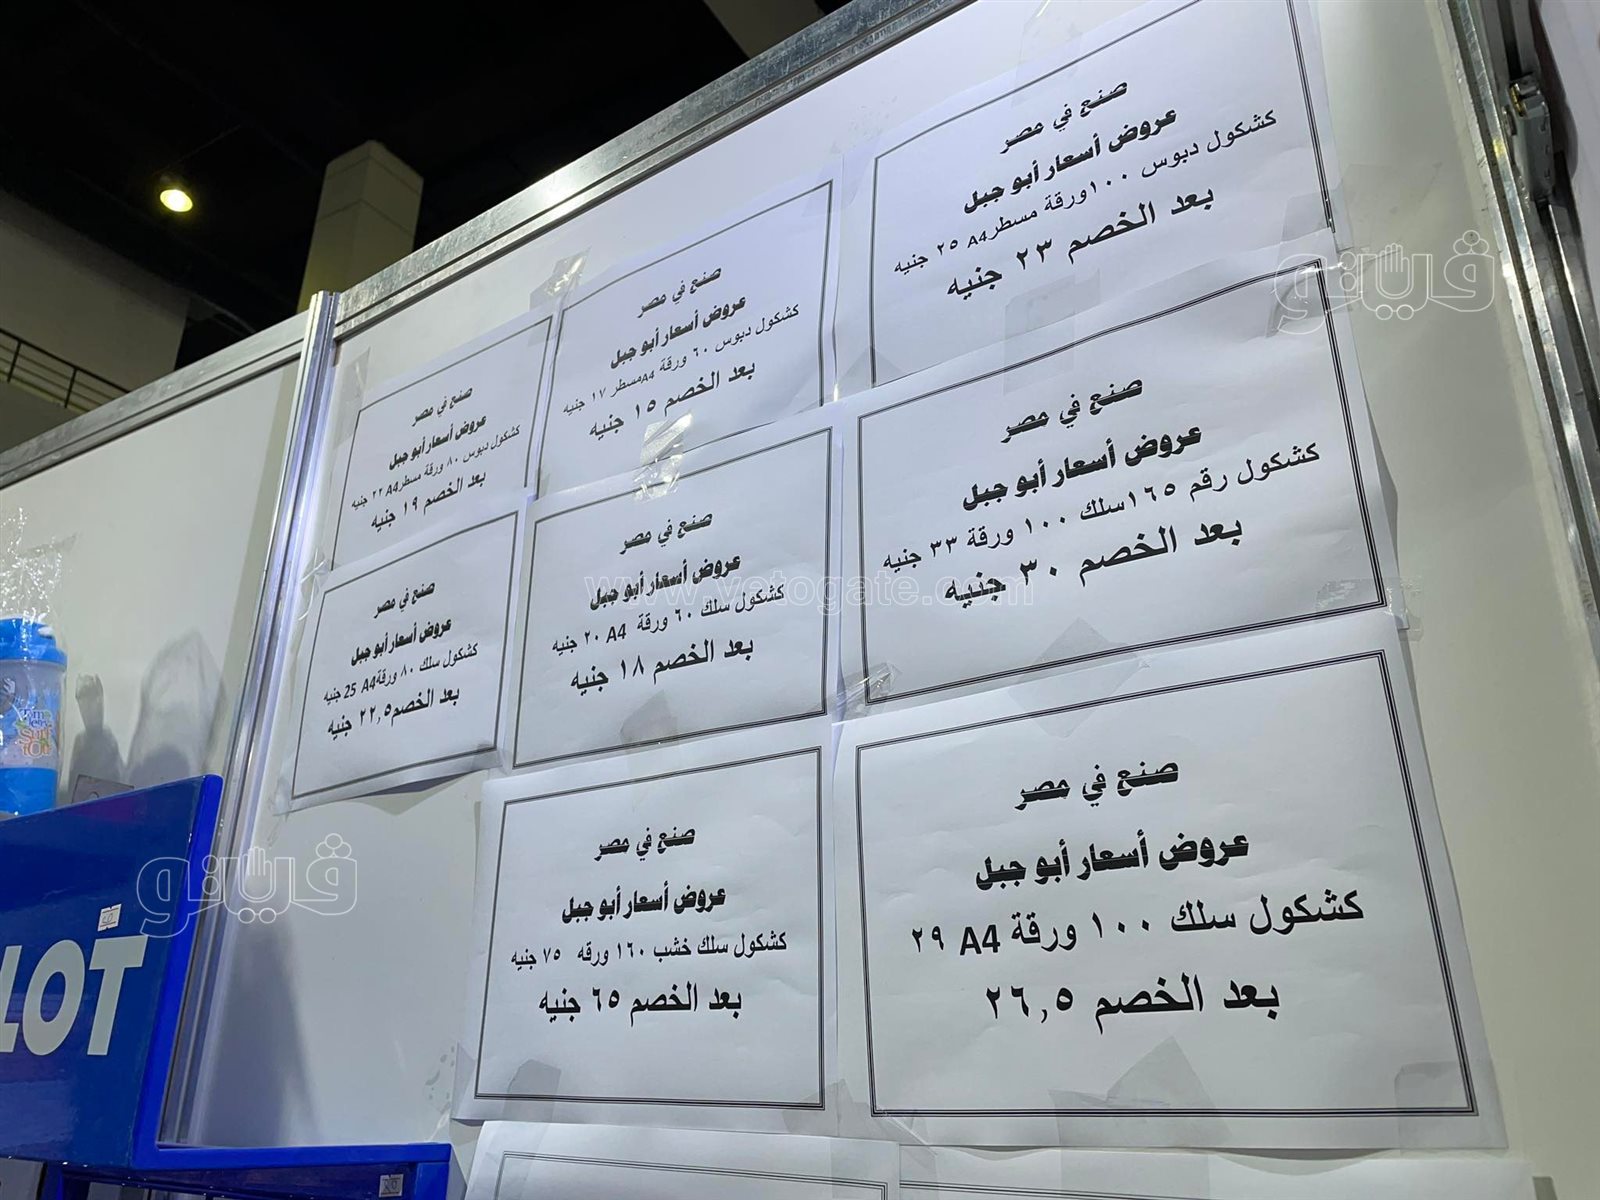 صنع في مصر
عروض أسعار أبو جبل
كشكول دبوس ١٠٠ورقة مسطرA4 ٢٥ جنيه
بعد الخصم ٢٣ جنيه
صنع في مصر
عروض أسعار أبو جبل
كشكول دبوس ٦٠ ورقة A4مسطر ١٧ جنيه
بعد الخصم ١٥ جنيه
صنع في مصر
عروض أسعار أبو جبل
كشكول دبوس ٨٠ ورقة مسطرA4 ٢٢ جنيه
بعد الخصم ١٩ جنيه
صنع في مصر
عروض أسعار أبو جبل
كشكول رقم ١٦٥سلك ١٠٠ ورقة ٣٣ جنيه
بعد الخصم ٣٠ جنيه
صنع في مصر
عروض أسعار أبو جبل
كشكول سلك ٦٠ ورقة A4 ٢٠ جنيه
بعد الخصم ١٨ جنيه
صنع في مصر
عروض أسعار أبو جبل
كشكول سلك ٨٠ ورقةA4 25 جنيه
بعد الخصم٢٢,٥ جنيه
صنع في مصر
عروض أسعار أبو جبل
كشكول سلك ١٠٠ ورقة A4 ٢٩
بعد الخصم ٢٦,٥
صنع في مصر
عروض أسعار أبو جبل
كشكول سلك خشب ١٦٠ ورقه ٧٥ جنيه
بعد الخصم ٦٥ جنيه
LOT
ڤيتو
ڤيتو
www.vetogate.com